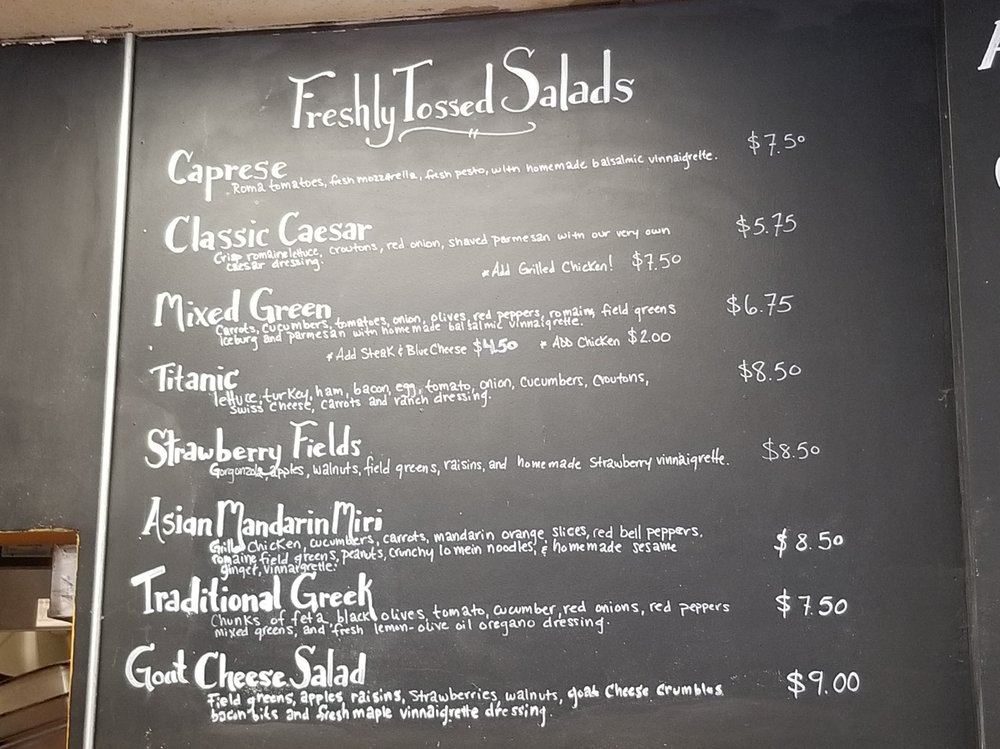 Freshly Tossed Salads
Caprese $7.50
Roma tomatoes, fresh mozzarella, fresh pesto, with homemade balsalmic vinnaigrette.
Classic Caesar $5.75
Crisp romaine lettuce, croutons, red onion, shaved parmesan with our very own
caesar dressing.
*Add Grilled Chicken! $7.50
Mixed Green $6.75
Carrots, cucumbers, tomatoes, onion, olives, red peppers, romain, field greens
iceburg and parmesan with homemade balsalmic vinnaigrette.
*Add Steak & Blue Cheese $4.50 *Add Chicken $2.00
Titanic $8.50
lettuce, turkey, ham, bacon, egg, tomato, onion, cucumbers, croutons,
Swiss cheese, carrots and ranch dressing.
Strawberry Fields $8.50
Gorgonzola, apples, walnuts, field greens, raisins, and homemade Strawberry vinnaigrette.
Asian Mandarin Miri $8.50
Grilled Chicken, cucumbers, carrots, mandarin orange slices, red bell peppers,
romaine field greens, peanuts, crunchy lo mein noodles, & homemade sesame
ginger, vinnargrette.
Traditional Greek $7.50
Chunks of feta, black olives, tomato, cucumber, red onions, red peppers
mixed greens, and fresh lemon-olive oil oregano dressing.
Goat Cheese Salad $9.00
Field greens, apples, raisins, Strawberries, walnuts, goat cheese crumbles
bacon bits and fresh maple vinnaigrette dressing.